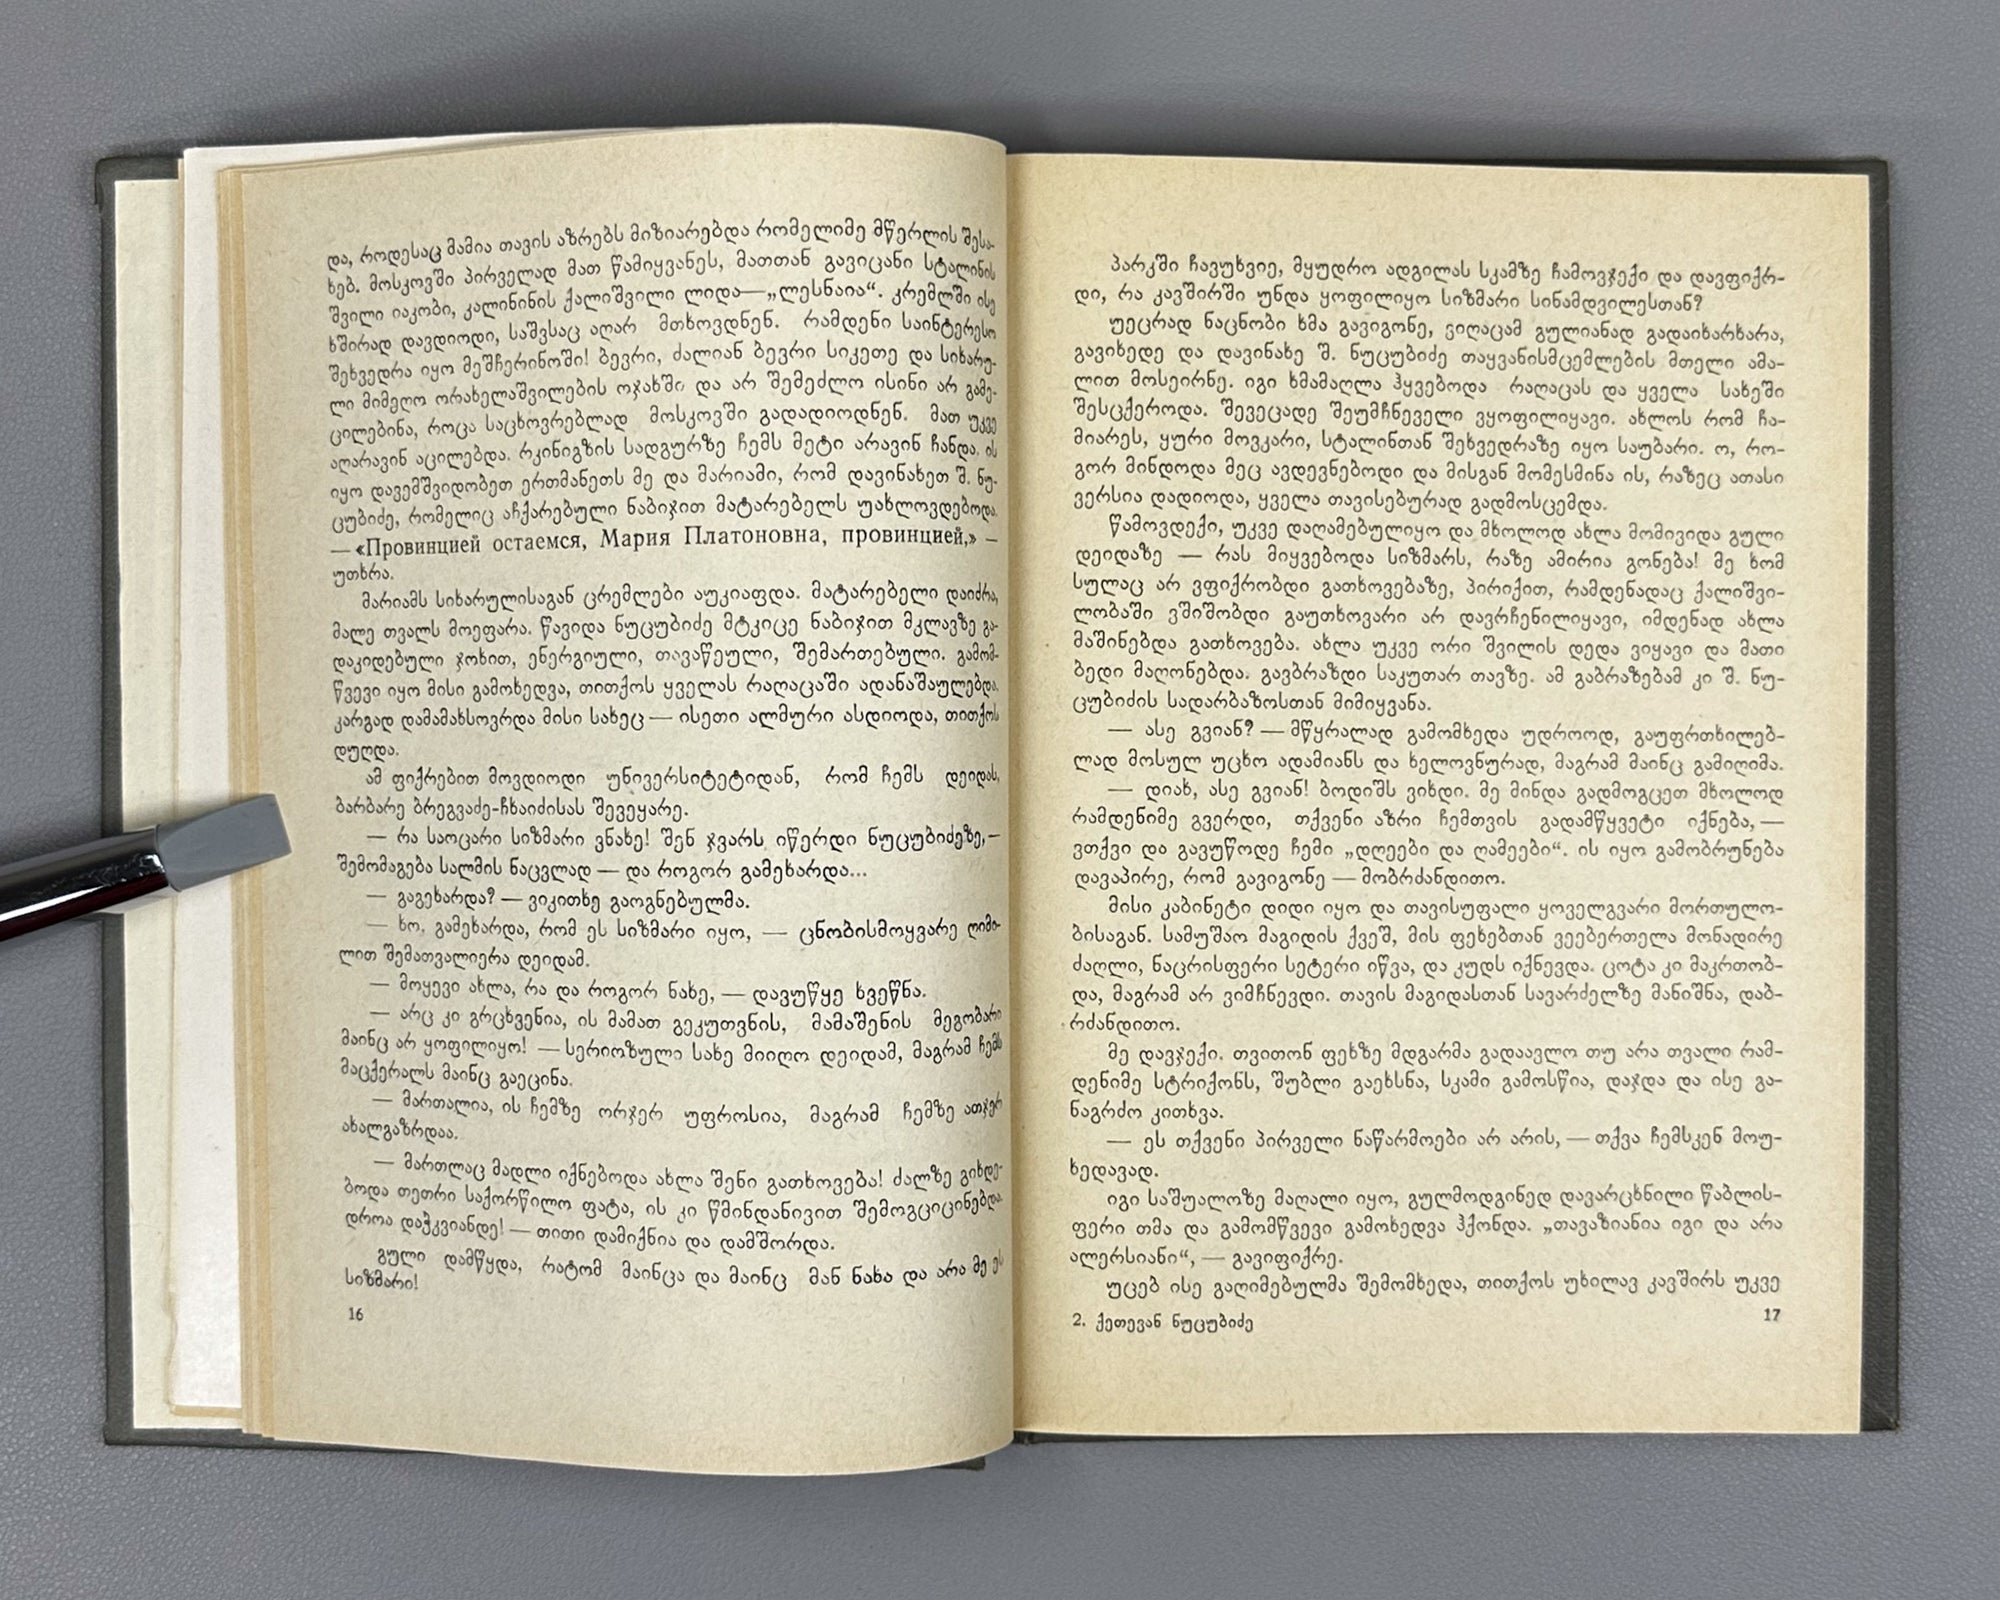 და, როდესაც მამია თავის აზრებს მიზიარებდა რომელიმე მწერლის შესა-
ხებ. მოსკოვში პირველად მათ წამიყვანეს, მათთან გავიცანი სტალინის
შვილი იაკობი, კალინინის ქალიშვილი ლიდა—„ლესნაია“. კრემლში ისე
ხშირად დავდიოდი, საშვსაც აღარ მთხოვდნენ. რამდენი საინტერესო
შეხვედრა იყო მეშჩერინოში! ბევრი, ძალიან ბევრი სიკეთე და სიხარუ-
ლი მიმეღო ორახელაშვილების ოჯახში და არ შემეძლო ისინი არ გამე-
ცილებინა, როცა საცხოვრებლად მოსკოვში გადადიოდნენ. მათ უკვე
აღარავინ აცილებდა. რკინიგზის სადგურზე ჩემს მეტი არავინ ჩანდა. ის
იყო დავემშვიდობეთ ერთმანეთს მე და მარიამი, რომ დავინახეთ შ. ნუ-
ცუბიძე, რომელიც აჩქარებული ნაბიჯით მატარებელს უახლოვდებოდა.
— «Провинцией остаемся, Мария Платоновна, провинцией,» —
უთხრა.
მარიამს სიხარულისაგან ცრემლები აუკიაფდა. მატარებელი დაიძრა,
მალე თვალს მოეფარა. წავიდა ნუცუბიძე მტკიცე ნაბიჯით მკლავზე გა-
დაკიდებული ჯოხით, ენერგიული, თავაწეული, შემართებული. გამომ-
წვევი იყო მისი გამოხედვა, თითქოს ყველას რაღაცაში ადანაშაულებდა.
კარგად დამამახსოვრდა მისი სახეც — ისეთი ალმური ასდიოდა, თითქოს
დუღდა.
ამ ფიქრებით მოვდიოდი უნივერსიტეტიდან, რომ ჩემს დეიდას,
ბარბარე ბრეგვაძე-ჩხაიძისას შევეყარე.
— რა საოცარი სიზმარი ვნახე! შენ ჯვარს იწერდი ნუცუბიძეზე,—
შემომაგება სალმის ნაცვლად — და როგორ გამეხარდა...
— გაგეხარდა? — ვიკითხე გაოგნებულმა.
— ხო, გამეხარდა, რომ ეს სიზმარი იყო, — ცნობისმოყვარე ღიმი-
ლით შემათვალიერა დეიდამ.
— მოყევი ახლა, რა და როგორ ნახე, — დავუწყე ხვეწნა.
— არც კი გრცხვენია, ის მამათ გეკუთვნის, მამაშენის მეგობარი
მაინც არ ყოფილიყო! — სერიოზული სახე მიიღო დეიდამ, მაგრამ ჩემს
მაცქერალს მაინც გაეცინა.
— მართალია, ის ჩემზე ორჯერ უფროსია, მაგრამ ჩემზე ათჯერ
ახალგაზრდაა.
— მართლაც მადლი იქნებოდა ახლა შენი გათხოვება! ძალზე გიხდე-
ბოდა თეთრი საქორწილო ფატა, ის კი წმინდანივით შემოგციცინებდა.
დროა დაჭკვიანდე! — თითი დამიქნია და დამშორდა.
გული დამწყდა, რატომ მაინცა და მაინც მან ნახა და არა მე ეს
სიზმარი!
16
პარკში ჩავუხვიე, მყუდრო ადგილას სკამზე ჩამოვჯექი და დავფიქრ-
დი, რა კავშირში უნდა ყოფილიყო სიზმარი სინამდვილესთან?
უეცრად ნაცნობი ხმა გავიგონე, ვიღაცამ გულიანად გადაიხარხარა,
გავიხედე და დავინახე შ. ნუცუბიძე თაყვანისმცემლების მთელი ამა-
ლით მოსეირნე. იგი ხმამაღლა ჰყვებოდა რაღაცას და ყველა სახეში
შესცქეროდა. შევეცადე შეუმჩნეველი ვყოფილიყავი. ახლოს რომ ჩა-
მიარეს, ყური მოვკარი, სტალინთან შეხვედრაზე იყო საუბარი. ო, რო-
გორ მინდოდა მეც ავდევნებოდი და მისგან მომესმინა ის, რაზეც ათასი
ვერსია დადიოდა, ყველა თავისებურად გადმოსცემდა.
წამოვდექი, უკვე დაღამებულიყო და მხოლოდ ახლა მომივიდა გული
დეიდაზე — რას მიყვებოდა სიზმარს, რაზე ამირია გონება! მე ხომ
სულაც არ ვფიქრობდი გათხოვებაზე, პირიქით, რამდენადაც ქალიშვი-
ლობაში ვშიშობდი გაუთხოვარი არ დავრჩენილიყავი, იმდენად ახლა
მაშინებდა გათხოვება. ახლა უკვე ორი შვილის დედა ვიყავი და მათი
ბედი მაღონებდა. გავბრაზდი საკუთარ თავზე. ამ გაბრაზებამ კი შ. ნუ-
ცუბიძის სადარბაზოსთან მიმიყვანა.
— ასე გვიან? — მწყრალად გამომხედა უდროოდ, გაუფრთხილებ-
ლად მოსულ უცხო ადამიანს და ხელოვნურად, მაგრამ მაინც გამიღიმა.
— დიახ, ასე გვიან! ბოდიშს ვიხდი. მე მინდა გადმოგცეთ მხოლოდ
რამდენიმე გვერდი, თქვენი აზრი ჩემთვის გადამწყვეტი იქნება, —
ვთქვი და გავუწოდე ჩემი „დღეები და ღამეები“. ის იყო გამობრუნება
დავაპირე, რომ გავიგონე — მობრძანდითო.
მისი კაბინეტი დიდი იყო და თავისუფალი ყოველგვარი მორთულო-
ბისაგან. სამუშაო მაგიდის ქვეშ, მის ფეხებთან ვეებერთელა მონადირე
ძაღლი, ნაცრისფერი სეტერი იწვა, და კუდს იქნევდა. ცოტა კი მაკრთობ-
და, მაგრამ არ ვიმჩნევდი. თავის მაგიდასთან სავარძელზე მანიშნა, დაბ-
რძანდითო.
მე დავჯექი. თვითონ ფეხზე მდგარმა გადაავლო თუ არა თვალი რამ-
დენიმე სტრიქონს, შუბლი გაეხსნა, სკამი გამოსწია, დაჯდა და ისე გა-
ნაგრძო კითხვა.
— ეს თქვენი პირველი ნაწარმოები არ არის, — თქვა ჩემსკენ მოუ-
ხედავად.
იგი საშუალოზე მაღალი იყო, გულმოდგინედ დავარცხნილი წაბლის-
ფერი თმა და გამომწვევი გამოხედვა ჰქონდა. „თავაზიანია იგი და არა
ალერსიანი“, — გავიფიქრე.
უცებ ისე გაღიმებულმა შემომხედა, თითქოს უხილავ კავშირს უკვე
2. ქეთევან ნუცუბიძე
17